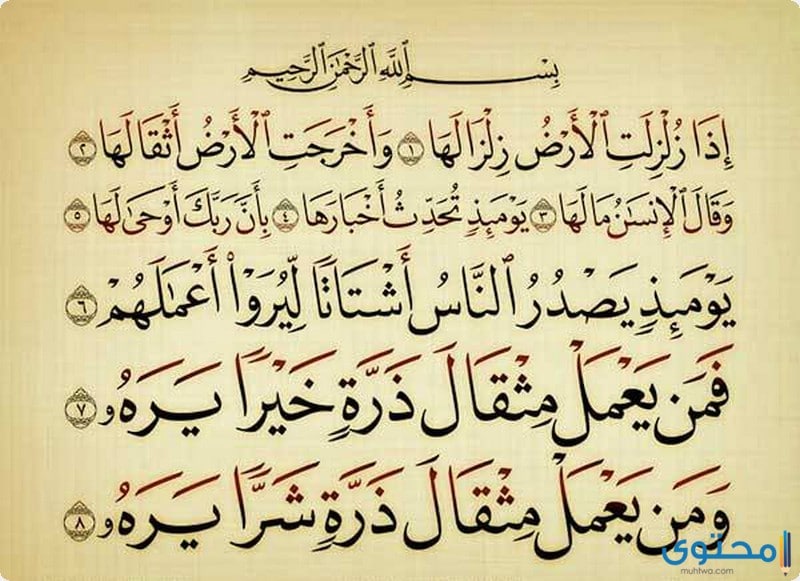 بِسْمِ ٱللَّهِ ٱلرَّحْمَٰنِ ٱلرَّحِيمِ
إِذَا زُلْزِلَتِ ٱلْأَرْضُ زِلْزَالَهَا ١ وَأَخْرَجَتِ ٱلْأَرْضُ أَثْقَالَهَا ٢
وَقَالَ ٱلْإِنسَٰنُ مَا لَهَا ٣ يَوْمَئِذٍ تُحَدِّثُ أَخْبَارَهَا ٤ بِأَنَّ رَبَّكَ أَوْحَىٰ لَهَا ٥
يَوْمَئِذٍ يَصْدُرُ ٱلنَّاسُ أَشْتَاتًا لِّيُرَوْا۟ أَعْمَٰلَهُمْ ٦
فَمَن يَعْمَلْ مِثْقَالَ ذَرَّةٍ خَيْرًا يَرَهُۥ ٧
وَمَن يَعْمَلْ مِثْقَالَ ذَرَّةٍ شَرًّا يَرَهُۥ ٨
محتوى
muhtwa.com